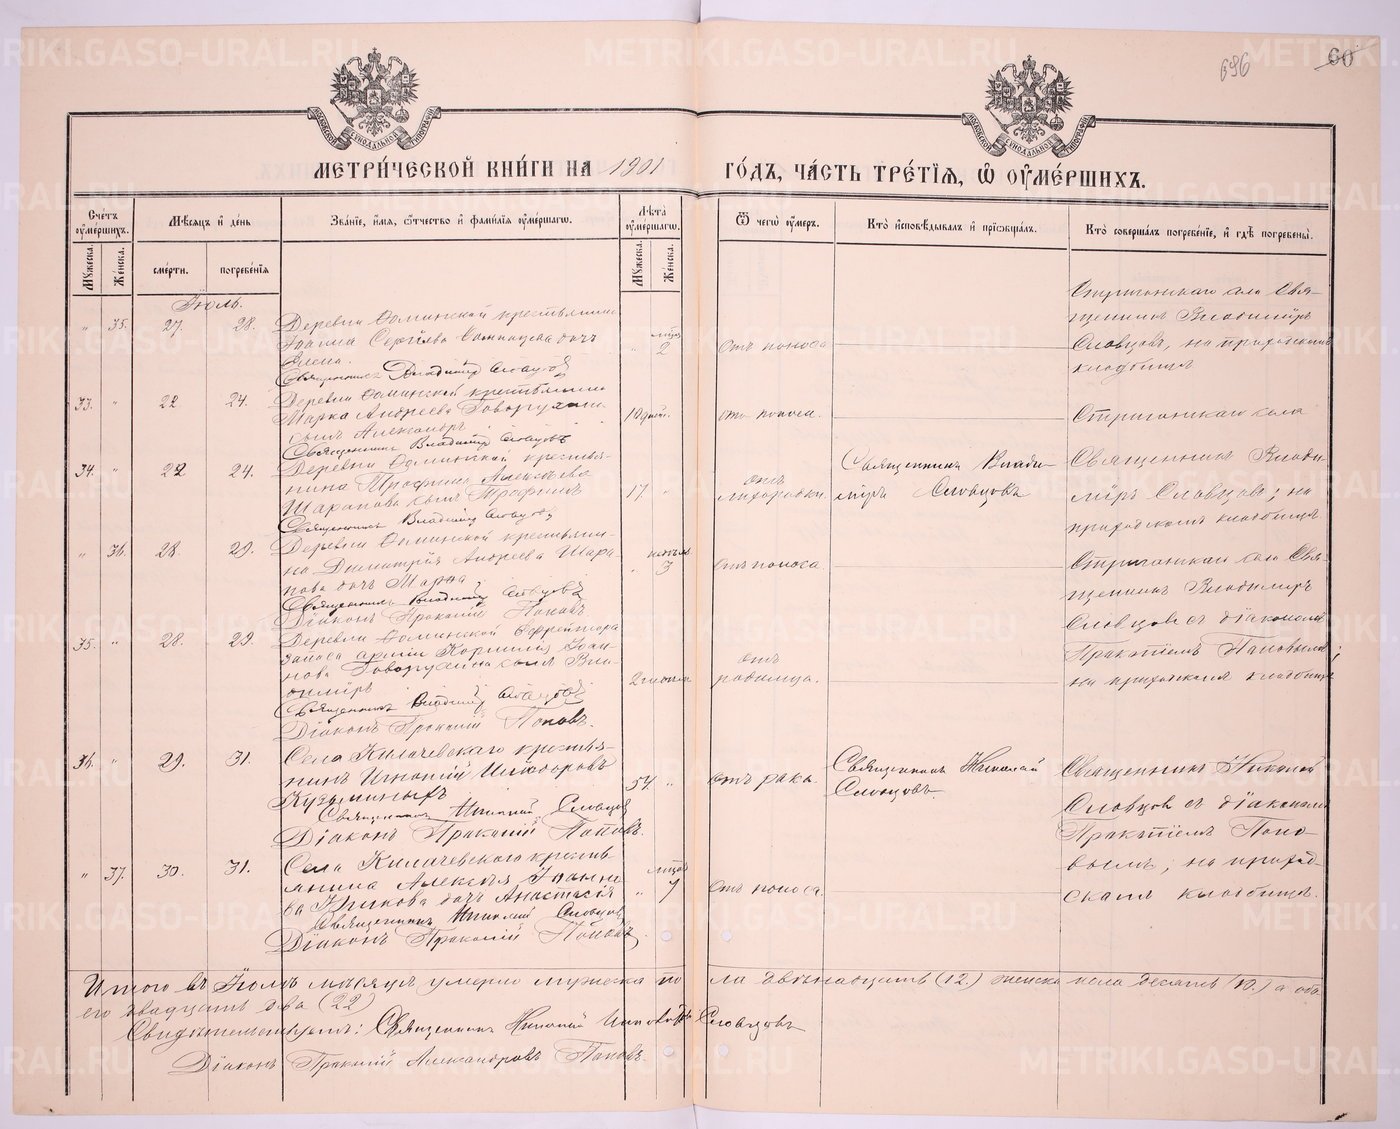 696
60
МОСКОВСКОЙ СѴНОДАЛЬНОЙ ТИПОГРАФІИ
МОСКОВСКОЙ СѴНОДАЛЬНОЙ ТИПОГРАФІИ
МЕТРИ́ЧЕСКОЙ КНИ́ГИ НА 1901 ГО́ДЪ, ЧА́СТЬ ТРЕ́ТІЯ, Ѡ ОУМЕ́РШИХЪ.
Сче́тъ оуме́ршихъ.
Мꙋжеска.
Же́нска.
Мѣ́сяцъ и де́нь
сме́рти.
погребе́нія
Зва́ніе, и́мя, ѻ́тчество и фами́лія оуме́ршагѡ.
Лѣ́та оуме́ршагѡ.
Мꙋжеска.
Же́нска.
Ѿ чегѡ̀ оу́меръ.
Кто̀ и҆сповѣ́дывалъ и прїѡбща́лъ.
Кто̀ соверша́лъ погребе́ніе, и гдѣ̀ погребены̀.
Іюль.
" 35. 27. 28.
Деревни Фоминской крестьянина
Іоанна Сергѣева дочь
Елена.
Священникъ Владимір Словцовъ
" мѣся 2
Отъ поноса
Стриганскаго села Свя-
щенникъ Владиміръ
Словцовъ, на приходскомъ
кладбищѣ
33. " 22 24.
Деревни Фоминской крестьянина
Марка Андреева Говорухина
сынъ Александръ
Священникъ Владимір Словцовъ
10 дней.
отъ поноса.
Стриганскаго села
34. " 22 24.
Деревни Фоминской крестья-
нина Трофима Алексѣева
Шарапова сынъ Трофимъ
Священникъ Владимір Словцовъ
17. "
отъ
лихорадки.
Священникъ Влади-
міръ Словцовъ
Священникъ Влади-
міръ Словцовъ; на
приходскомъ кладбищѣ.
" 36. 28. 29.
Деревни Фоминской крестьяни-
на Димитрія Андреева Шара-
пова дочь Марѳа
Священникъ Владимір Словцовъ
Діаконъ Прокопій Поповъ
" 3
Отъ поноса
Стриганскаго села Свя-
щенникъ Владиміръ
Словцовъ съ діакономъ
Прокопіемъ Поповымъ;
на приходскомъ кладбищѣ
35. " 28. 29.
Деревни Фоминской Ефрейтора
запаса арміи Корнилія Іоан-
нова Говорухина сынъ Вла-
диміръ
Священникъ Владимір Словцовъ
Діаконъ Прокопій Поповъ.
2
отъ
родимца.
36. " 29. 31.
Села Килачевскаго крестья-
нинъ Игнатій Исидоровъ
Кузьминыхъ
Священникъ Николай Словцовъ
Діаконъ Прокопій Поповъ.
54. "
отъ рака.
Священникъ Николай
Словцовъ.
Священникъ Николай
Словцов съ діакономъ
Прокопіемъ Попо-
вымъ; на приход
скомъ кладбищѣ.
" 37. 30. 31.
Села Килачевскаго кресть-
янина Алексѣя Іоанно
ва дочь Анастасія
Священникъ Николай Словцовъ
Діаконъ Прокопій Поповъ.
"
отъ поноса.
Итого въ Іюлѣ мѣсяцѣ умерло мужеска по ла двѣнадцать (12.) женска пола десять (10.) а обо
его двадцать два (22)
Свидѣтельствуемъ: Священникъ Николай Словцовъ
Діаконъ Прокопій Александровъ Поповъ.
METRIKI.GASO-URAL.RU